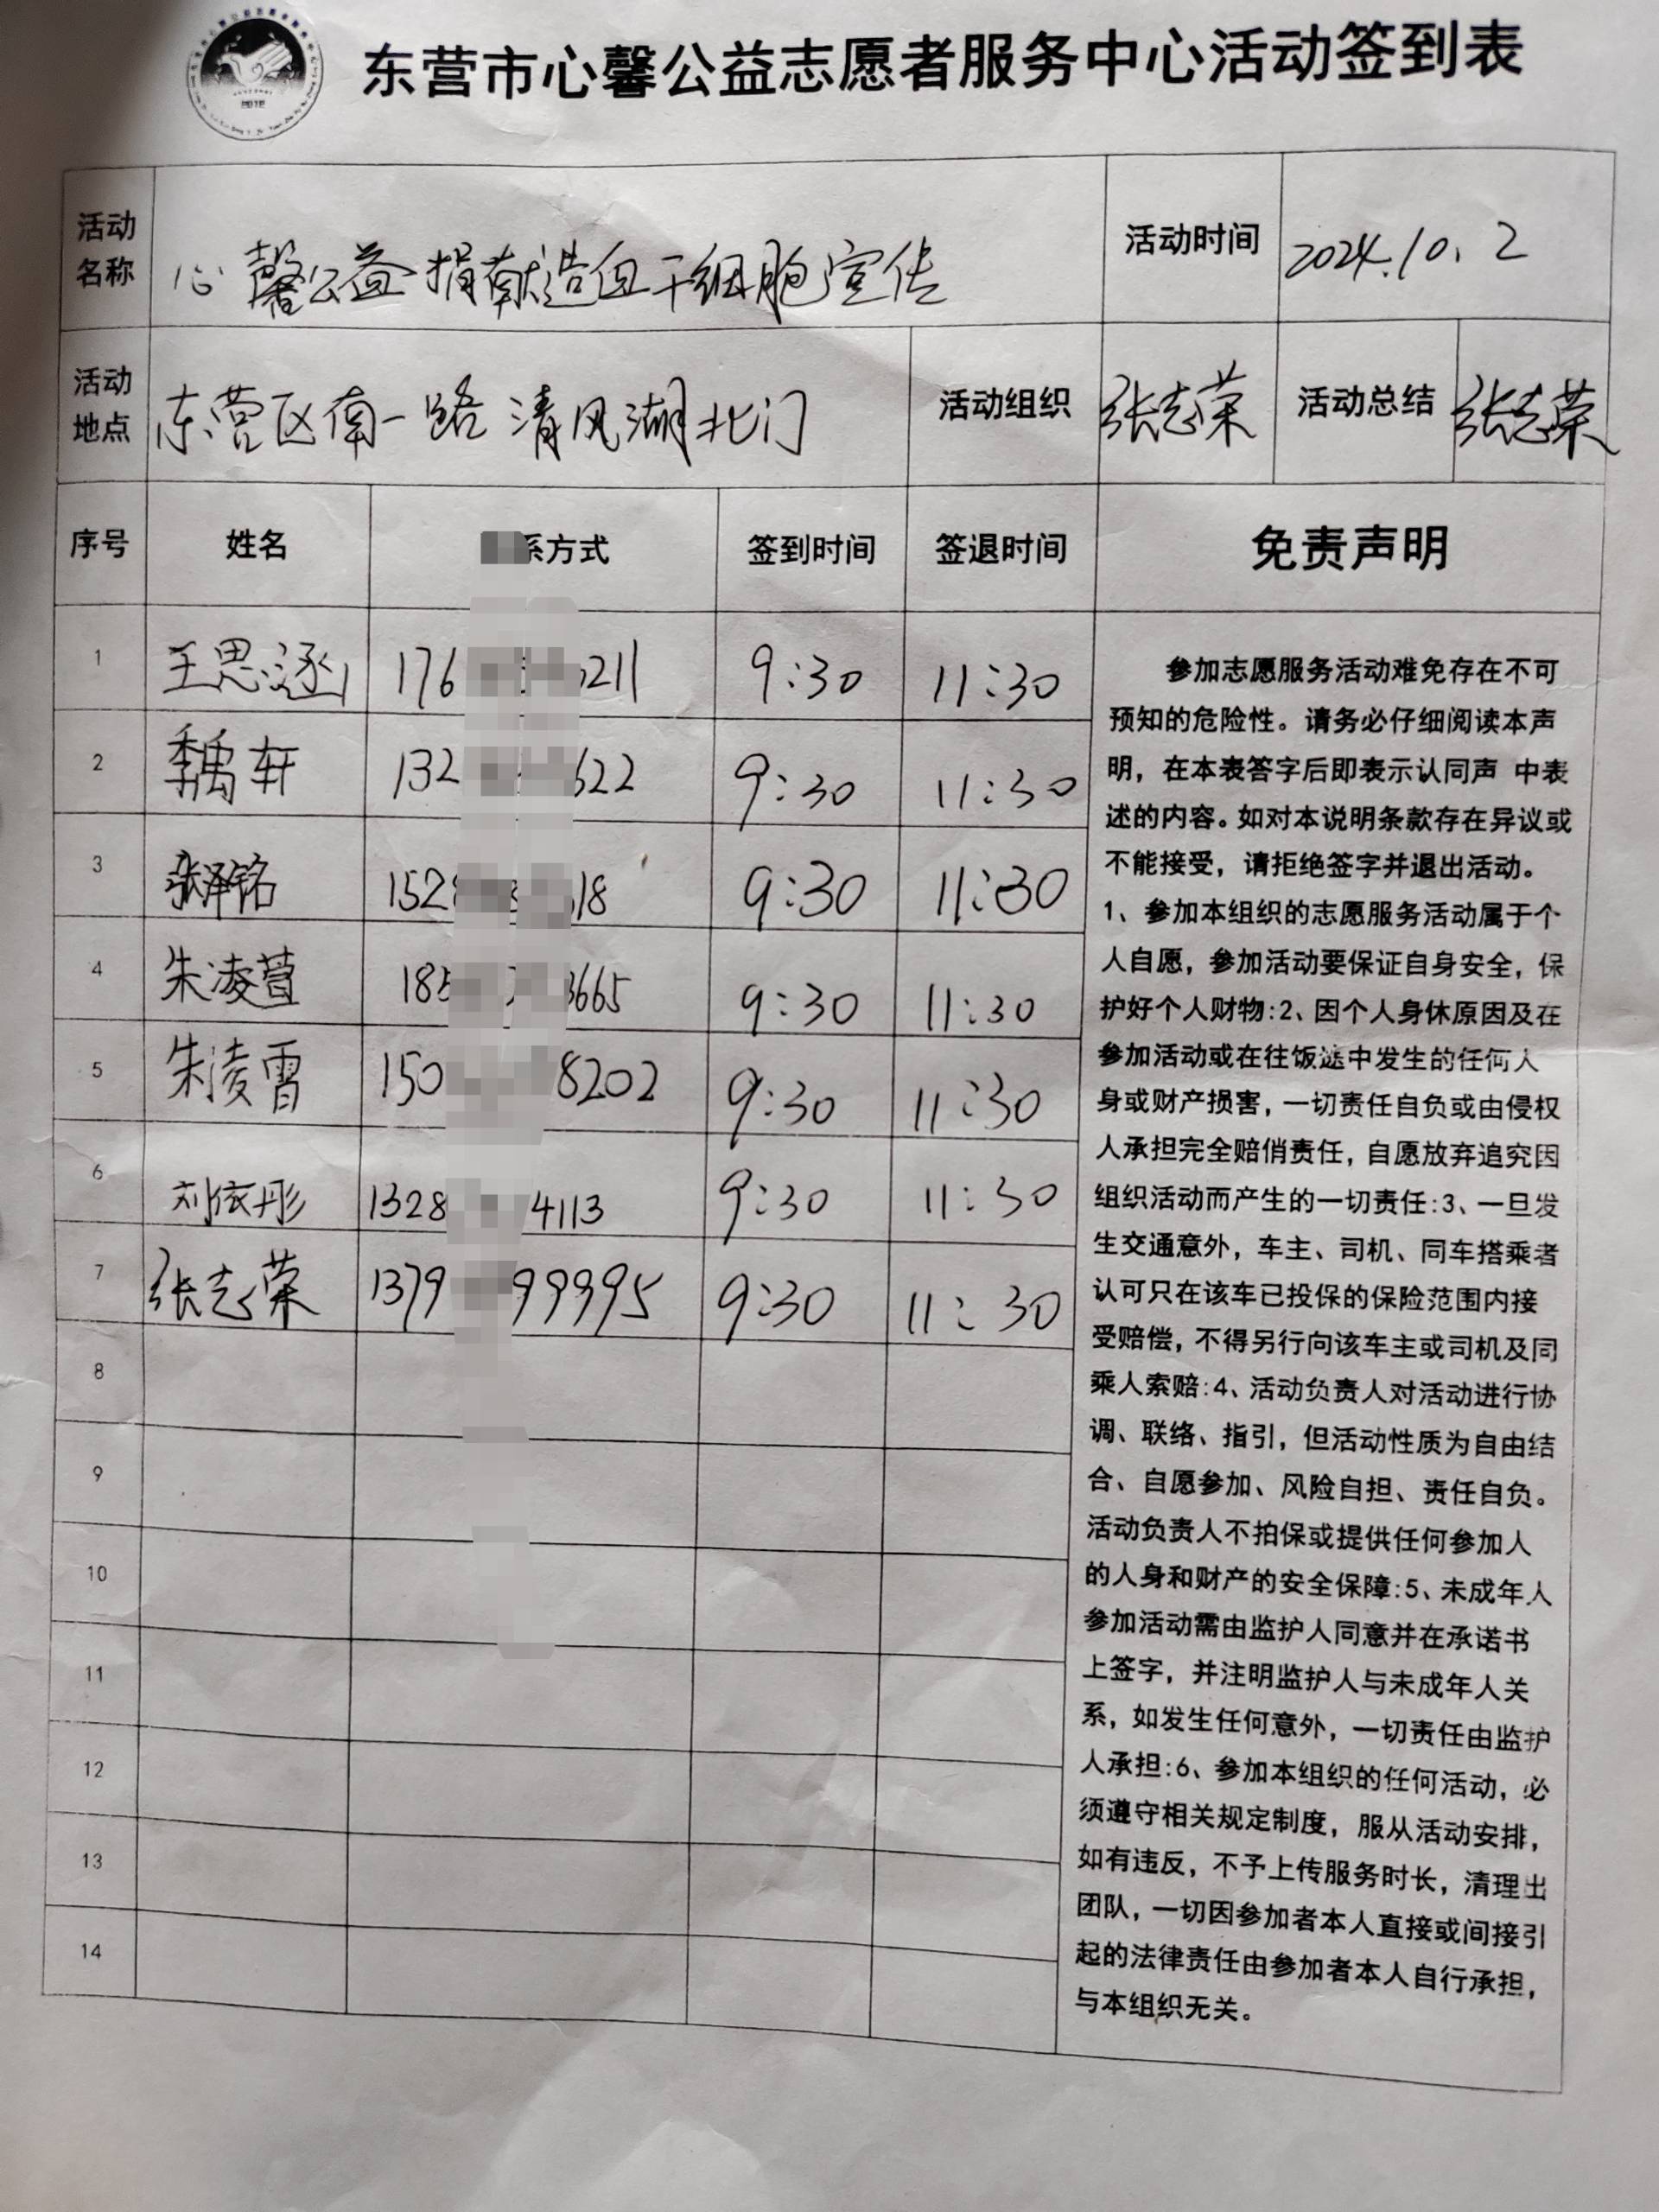 东营市心馨公益志愿者服务中心活动签到表
活动名称 心馨公益捐献造血干细胞宣传 活动时间 2024.10.2
活动地点 东营区南一路清风湖北门 活动组织 张志荣 活动总结 张志荣
序号 姓名 系方式 签到时间 签退时间 免责声明
1 王思 176 211 9:30 11:30
2 李禹轩 132 622 9:30 11:30
3 张泽铭 152 18 9:30 11:30
4 朱凌萱 185 3665 9:30 11:30
5 朱凌霄 150 8202 9:30 11:30
6 刘依彤 1328 4113 9:30 11:30
7 张志荣 1379 99995 9:30 11:30
8
9
10
11
12
13
14
参加志愿服务活动难免存在不可
预知的危险性。请务必仔细阅读本声
明，在本表答字后即表示认同声 中表
述的内容。如对本说明条款存在异议或
不能接受，请拒绝签字并退出活动。
1、参加本组织的志愿服务活动属于个
人自愿，参加活动要保证自身安全，保
护好个人财物:2、因个人身休原因及在
参加活动或在往饭途中发生的任何人
身或财产损害，一切责任自负或由侵权
人承担完全赔俏责任，自愿放弃追究因
组织活动而产生的一切责任:3、一旦发
生交通意外，车主、司机、同车搭乘者
认可只在该车已投保的保险范围内接
受赔偿，不得另行向该车主或司机及同
乘人索赔:4、活动负责人对活动进行协
调、联络、指引，但活动性质为自由结
合、自愿参加、风险自担、责任自负。
活动负责人不拍保或提供任何参加人
的人身和财产的安全保障:5、未成年人
参加活动需由监护人同意并在承诺书
上签字，并注明监护人与未成年人关
系，如发生任何意外，一切责任由监护
人承担:6、参加本组织的任何活动，必
须遵守相关规定制度，服从活动安排，
如有违反，不予上传服务时长，清理出
团队，一切因参加者本人直接或间接引
起的法律责任由参加者本人自行承担，
与本组织无关。